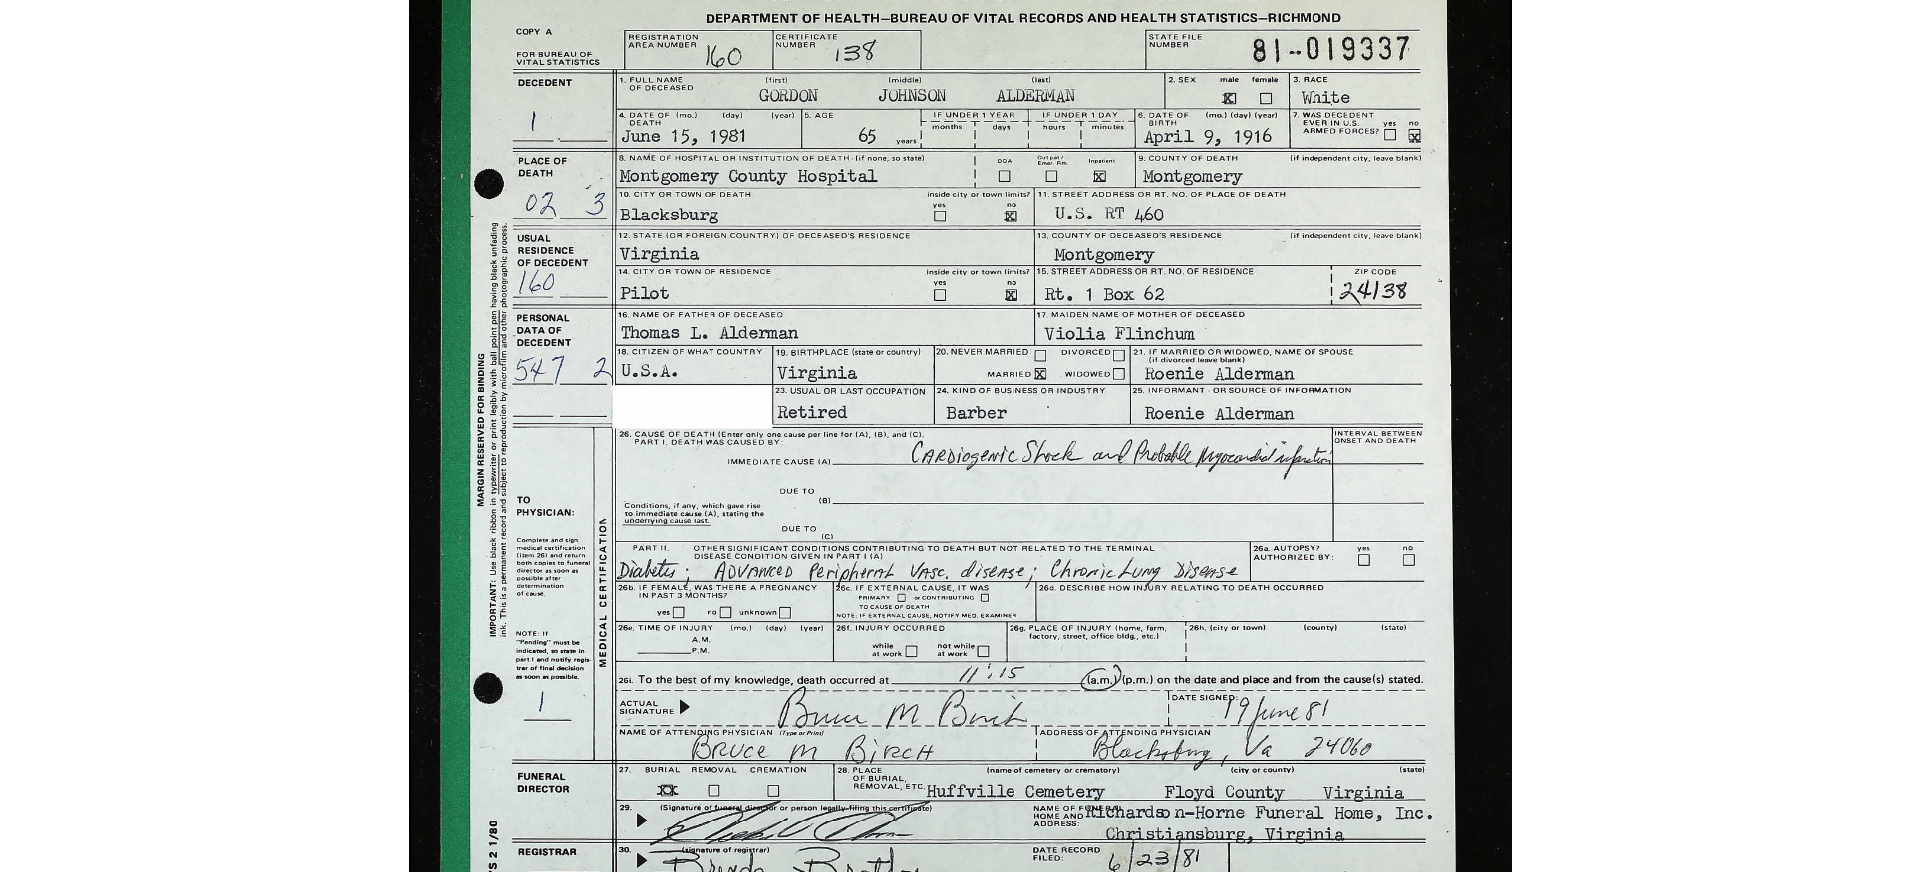 DEPARTMENT OF HEALTH—BUREAU OF VITAL RECORDS AND HEALTH STATISTICS—RICHMOND
COPY A
FOR BUREAU OF VITAL STATISTICS
REGISTRATION AREA NUMBER 160
CERTIFICATE NUMBER 138
STATE FILE NUMBER 81-019337
DECEDENT
1
1. FULL NAME OF DECEASED (first) (middle) (last)
GORDON JOHNSON ALDERMAN
2. SEX male ☒ female ☐
3. RACE
White
4. DATE OF DEATH (mo.) (day) (year)
June 15, 1981
5. AGE
65 years
IF UNDER 1 YEAR months days
IF UNDER 1 DAY hours minutes
6. DATE OF BIRTH (mo.) (day) (year)
April 9, 1916
7. WAS DECEDENT EVER IN U.S. ARMED FORCES? yes ☐ no ☒
PLACE OF DEATH
02 3
8. NAME OF HOSPITAL OR INSTITUTION OF DEATH-(if none, so state)
Montgomery County Hospital
DOA ☐ Out pat/ Emer. Rm. ☐ Inpatient ☒
9. COUNTY OF DEATH (if independent city, leave blank)
Montgomery
10. CITY OR TOWN OF DEATH
Blacksburg
inside city or town limits? yes ☐ no ☒
11. STREET ADDRESS OR RT. NO. OF PLACE OF DEATH
U.S. RT 460
USUAL RESIDENCE OF DECEDENT
160
12. STATE (OR FOREIGN COUNTRY) OF DECEASED'S RESIDENCE
Virginia
13. COUNTY OF DECEASED'S RESIDENCE (if independent city, leave blank)
Montgomery
14. CITY OR TOWN OF RESIDENCE
Pilot
inside city or town limits? yes ☐ no ☒
15. STREET ADDRESS OR RT. NO. OF RESIDENCE
Rt. 1 Box 62
ZIP CODE
24138
PERSONAL DATA OF DECEDENT
547 2
16. NAME OF FATHER OF DECEASED
Thomas L. Alderman
17. MAIDEN NAME OF MOTHER OF DECEASED
Violia Flinchum
18. CITIZEN OF WHAT COUNTRY
U.S.A.
19. BIRTHPLACE (state or country)
Virginia
20. NEVER MARRIED ☐ DIVORCED ☐
MARRIED ☒ WIDOWED ☐
21. IF MARRIED OR WIDOWED, NAME OF SPOUSE (if divorced leave blank)
Roenie Alderman
23. USUAL OR LAST OCCUPATION
Retired
24. KIND OF BUSINESS OR INDUSTRY
Barber
25. INFORMANT - OR SOURCE OF INFORMATION
Roenie Alderman
MARGIN RESERVED FOR BINDING
IMPORTANT: Use black ribbon in typewriter or print legibly with ball point pen having black unfading
ink. This is a permanent record and subject to reproduction by microfilm and other photographic process.
VS 2 1/80
MEDICAL CERTIFICATION
TO PHYSICIAN:
Complete and sign
medical certification
(item 26) and return
both copies to funeral
director as soon as
possible after
determination
of cause.
NOTE: If
"Pending" must be
indicated, so state in
part I and notify regis-
trar of final decision
as soon as possible.
1
26. CAUSE OF DEATH (Enter only one cause per line for (A), (B), and (C).
PART I. DEATH WAS CAUSED BY:
INTERVAL BETWEEN ONSET AND DEATH
IMMEDIATE CAUSE (A) CARDiogenic Shock and Probable Myocardial infarction
DUE TO (B)
Conditions, if any, which gave rise
to immediate cause (A), stating the
underlying cause last.
DUE TO (C)
PART II. OTHER SIGNIFICANT CONDITIONS CONTRIBUTING TO DEATH BUT NOT RELATED TO THE TERMINAL
DISEASE CONDITION GIVEN IN PART I (A)
Diabetes; ADVANCED Peripheral Vasc. disease; Chronic Lung Disease
26a. AUTOPSY? AUTHORIZED BY: yes ☐ no ☐
26b. IF FEMALE, WAS THERE A PREGNANCY IN PAST 3 MONTHS?
yes ☐ no ☐ unknown ☐
26c. IF EXTERNAL CAUSE, IT WAS
PRIMARY ☐ or CONTRIBUTING ☐
TO CAUSE OF DEATH
NOTE: IF EXTERNAL CAUSE, NOTIFY MED. EXAMINER
26d. DESCRIBE HOW INJURY RELATING TO DEATH OCCURRED
26e. TIME OF INJURY (mo.) (day) (year)
A.M.
P.M.
26f. INJURY OCCURRED
while at work ☐ not while at work ☐
26g. PLACE OF INJURY (home, farm, factory, street, office bldg., etc.)
26h. (city or town) (county) (state)
26i. To the best of my knowledge, death occurred at 11:15 (a.m.) (p.m.) on the date and place and from the cause(s) stated.
ACTUAL SIGNATURE Bruce M Birch
DATE SIGNED: 19 June 81
NAME OF ATTENDING PHYSICIAN (Type or Print)
BRUCE M BIRCH
ADDRESS OF ATTENDING PHYSICIAN
Blacksburg, Va 24060
FUNERAL DIRECTOR
27. BURIAL REMOVAL CREMATION
28. PLACE OF BURIAL, REMOVAL, ETC. (name of cemetery or crematory) (city or county) (state)
Huffville Cemetery Floyd County Virginia
29. (Signature of funeral director or person legally filing this certificate)
NAME OF FUNERAL HOME AND ADDRESS:
Richardson-Horne Funeral Home, Inc.
Christiansburg, Virginia
REGISTRAR
30. (signature of registrar)
Brenda
DATE RECORD FILED: 6/23/81